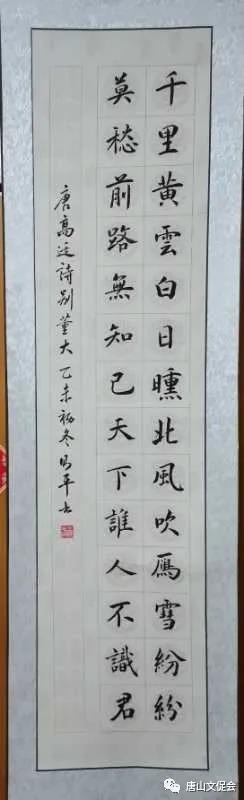 千里黄雲白日曛北風吹鴈雪紛紛
莫愁前路無知己天下誰人不識君
唐高适詩别董大乙未初冬
唐山文促会